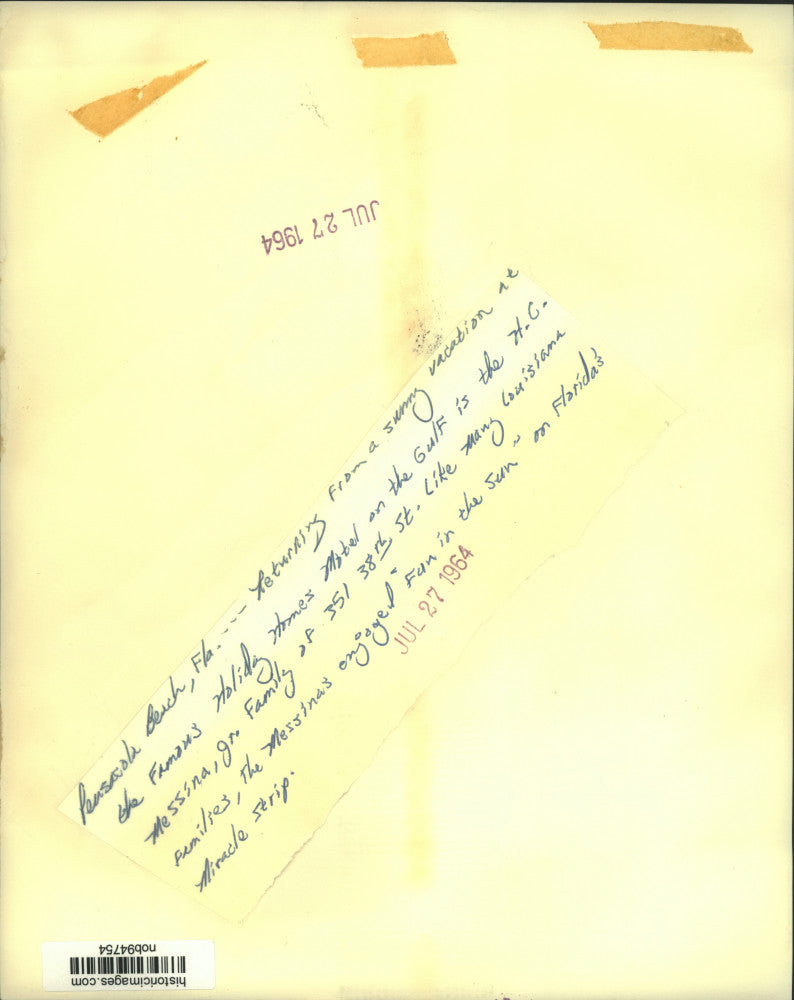 JUL 27 1964
Pensacola Beach, Fla. --- Returning from a sunny vacation at
the famous Holiday Homes Motel on the Gulf is the H.C.
Messina, Jr. family of 351 38th St. Like many Louisiana
families, the Messinas enjoyed "Fun in the Sun" on Florida's
Miracle Strip.
JUL 27 1964
historicimages.com
nob94754